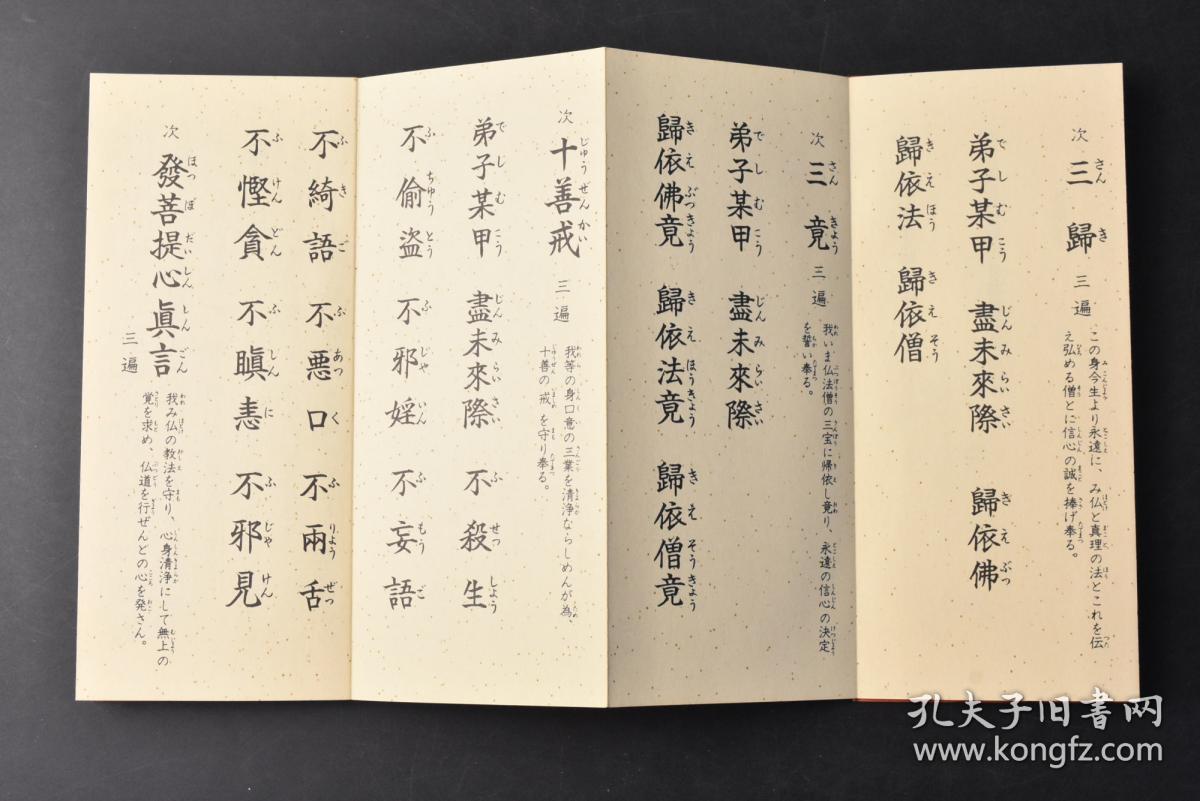 次 三歸 三遍
この身今生より永遠に、み仏と真理の法とこれを伝
え弘める僧とに信心の誠を捧げ奉る。
弟子某甲 盡未來際 歸依佛
歸依法 歸依僧
次 三竟 三遍
我いま仏法僧の三宝に帰依し竟り、永遠の信心の決定
を誓い奉る。
弟子某甲 盡未來際
歸依佛竟 歸依法竟 歸依僧竟
次 十善戒 三遍
我等の身口意の三業を清浄ならしめんが為、
十善の戒を守り奉る。
弟子某甲 盡未來際 不殺生
不偷盗 不邪婬 不妄語
不綺語 不悪口 不兩舌
不慳貪 不瞋恚 不邪見
次 發菩提心眞言 三遍
我み仏の教法を守り、心身清浄にして無上の
覚を求め、仏道を行ぜんとの心を発さん。
孔夫子旧书网
www.kongfz.com